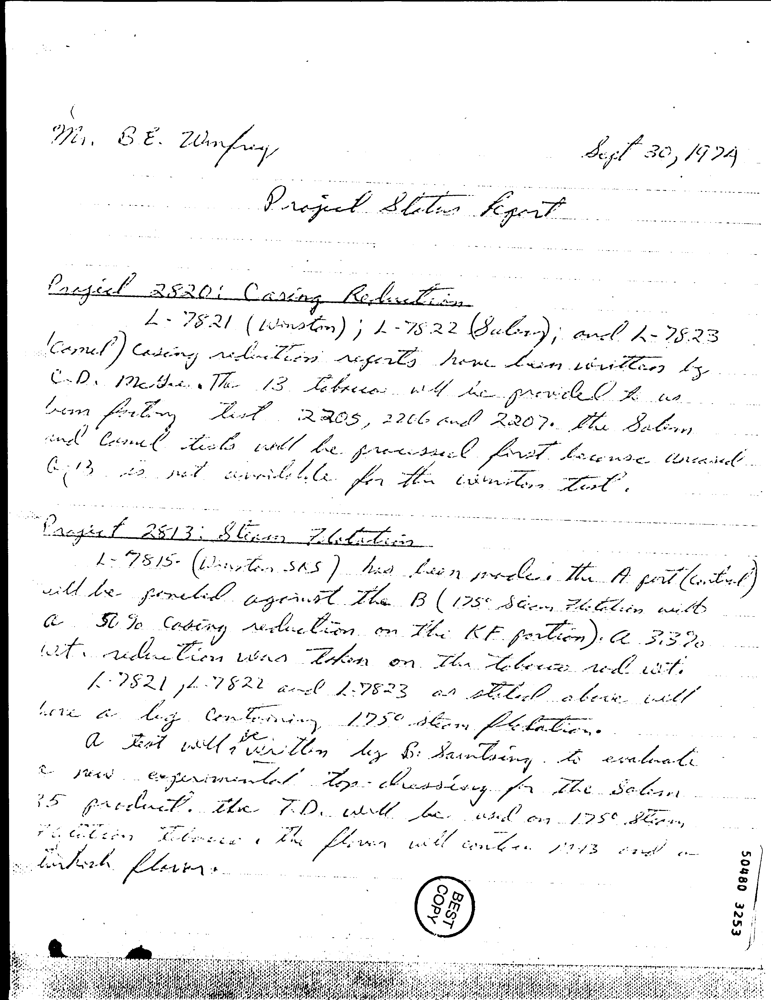 Mr. B E. Winfrey
Sept 30, 1974
Project Status Report
Project 2820: Casing Reduction
L-7821 (Winston); L-7822 (Salem); and L-7823
(Camel) Casing reduction reports have been written by
C.D. The 13 tobacco will be provided to us
from test 2205, 2206 and 2207. The Salem
and Camel tests will be processed first because uncased
G,13 is not available for the winston test.
Project 2813: Steam Flotation
L-7815. (Winston SKS) has been made. The A port (control)
will be paneled against the B (175° Steam Flotation with
a 50% Casing reduction on the KF portion). A 3.3%
wt. reduction was taken on the tobacco rod wt.
L-7821, L-7822 and L-7823 as stated above will
have a leg containing 175° steam flotation.
A test will be written by B. to evaluate
a new experimental top-dressing for the Salem
85 product. the T.D. will be used on 175° Steam
Flotation Tobacco. The flavor will contain and a
turkish flavor.
BEST
COPY
50480 3253